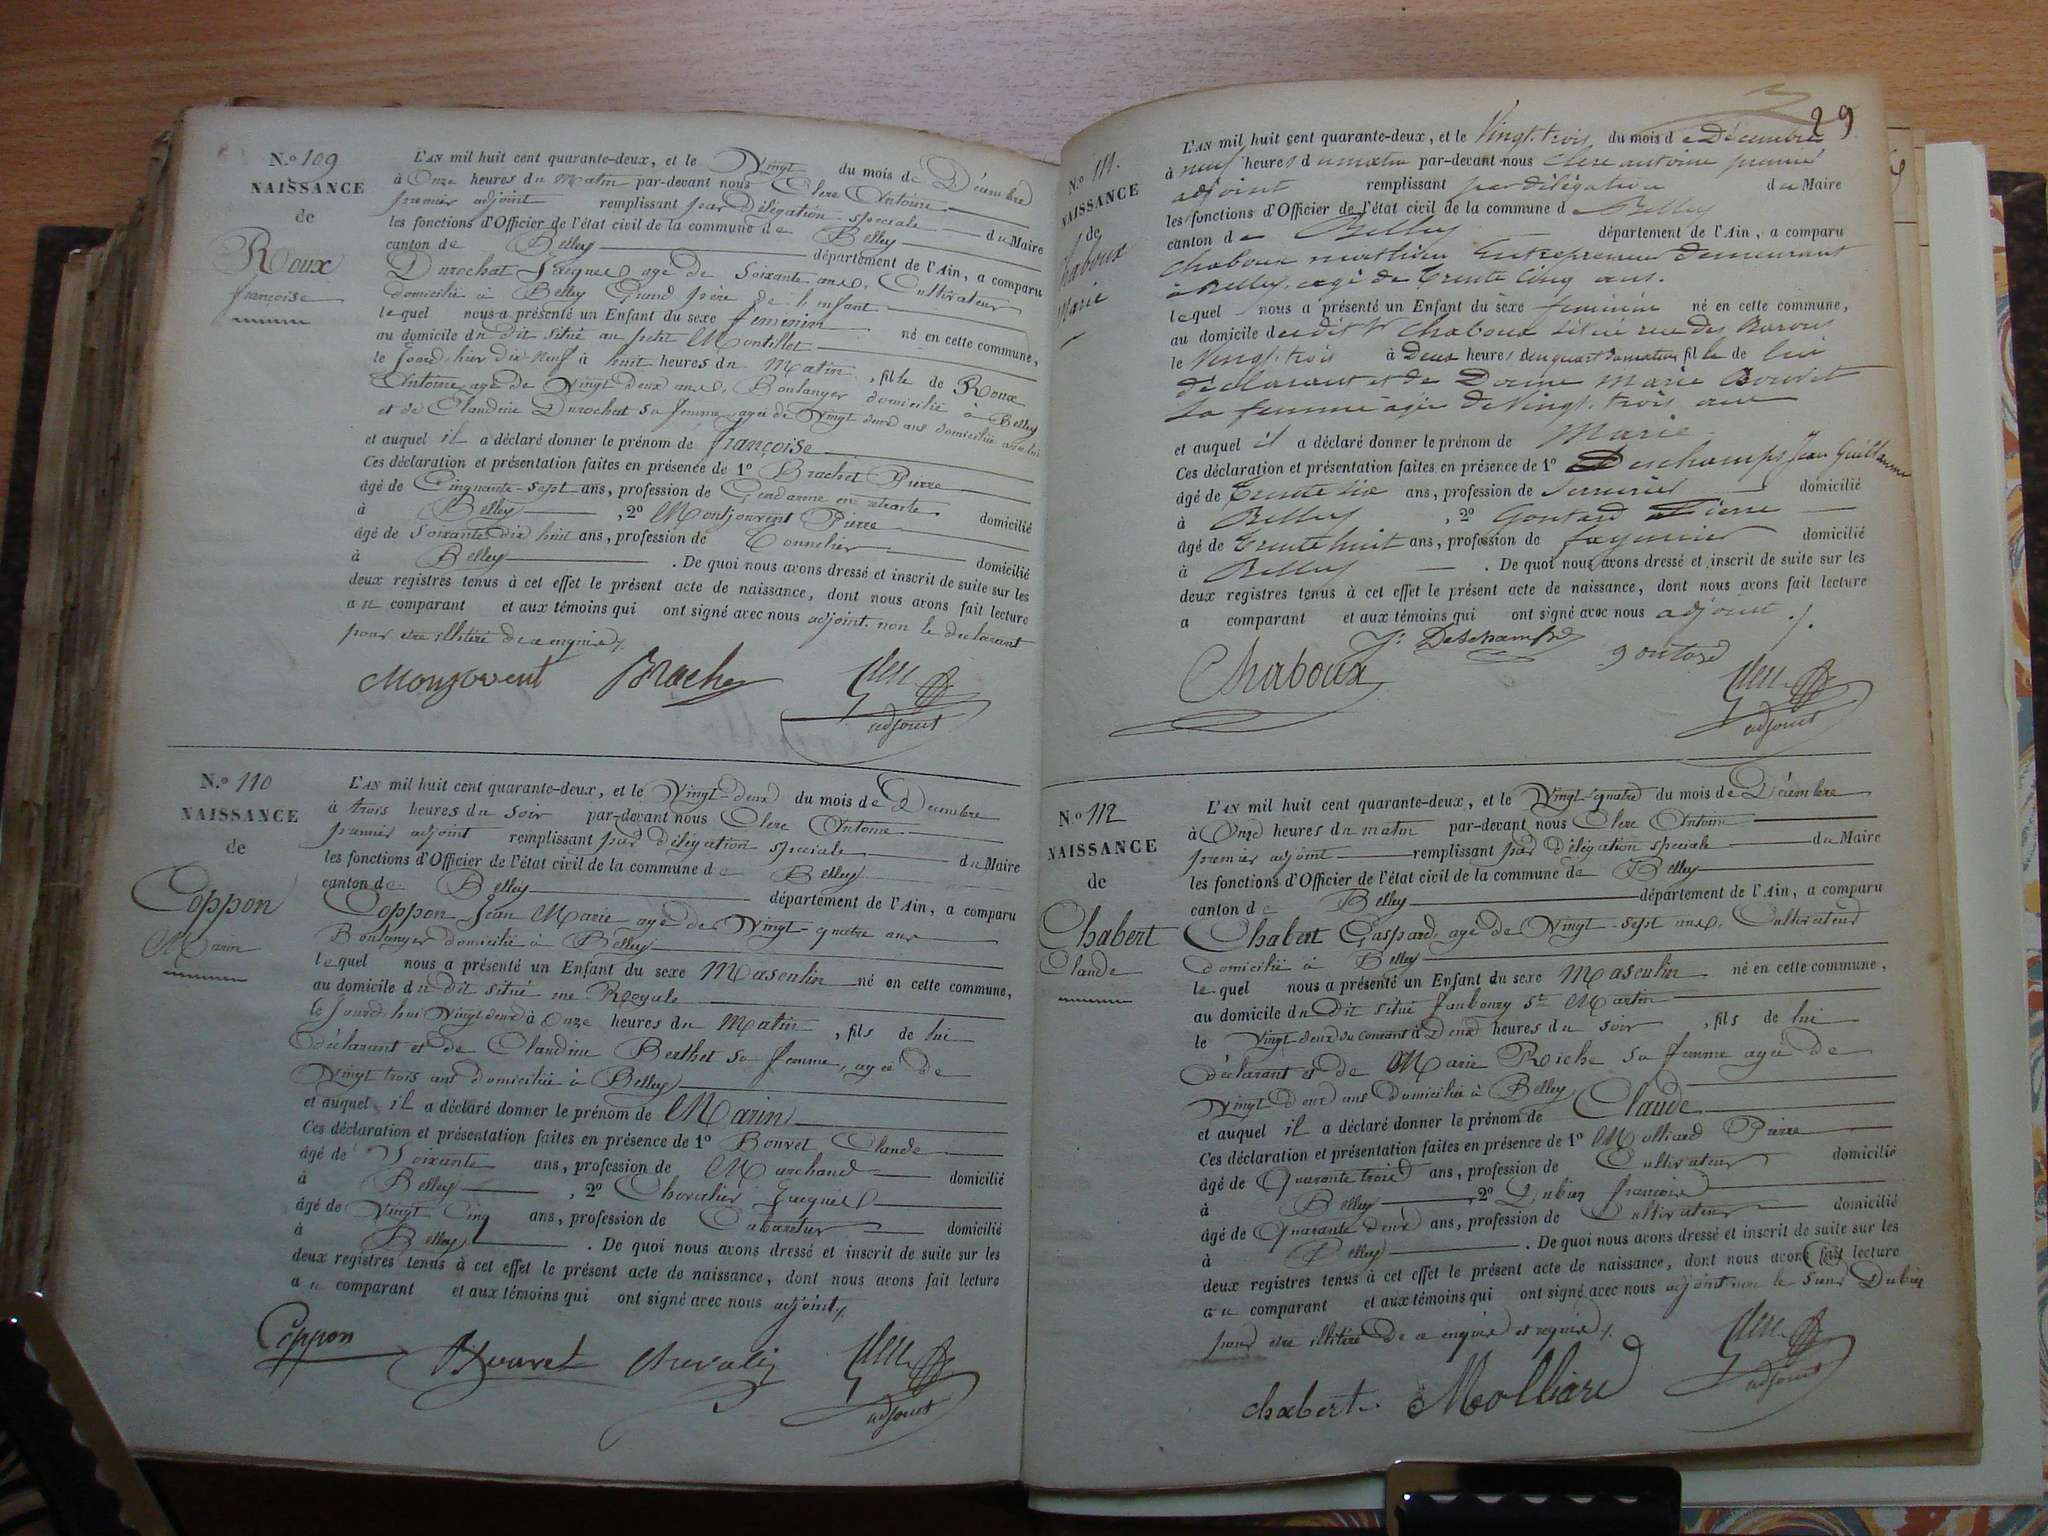 N.o 109
NAISSANCE
de
Roux
françoise
L'AN mil huit cent quarante-deux, et le Vingt du mois de Décembre
à Onze heures du Matin par-devant nous Clerc Antoine
premier adjoint remplissant par délégation spéciale du Maire
les fonctions d'Officier de l'état civil de la commune de Belley
canton de Belley département de l'Ain, a comparu
Durochat Jacques agé de Soixante ans, Cultivateur
domicilié à Belley Grand père de l'enfant
lequel nous a présenté un Enfant du sexe femenin né en cette commune,
au domicile du dit situé au petit Montillet
le Jourd-hier dix neuf à huit heures du Matin, fille de Roux
Antoine agé de Vingt deux ans, Boulanger domicilié à Belley
et de Claudine Durochat sa femme agée de Vingt deux ans domiciliée avec lui
et auquel il a déclaré donner le prénom de françoise
Ces déclaration et présentation faites en présence de 1o Brachet Pierre
âgé de Cinquante-sept ans, profession de Gendarme en retraite domicilié
à Belley, 2o Montjouvent Pierre
âgé de soixante dix huit ans, profession de Tonnelier domicilié
à Belley. De quoi nous avons dressé et inscrit de suite sur les
deux registres tenus à cet effet le présent acte de naissance, dont nous avons fait lecture
au comparant et aux témoins qui ont signé avec nous adjoint. non le declarant
pour etre illitéré de ce enquis
Monjovent Brachet Clerc
adjoint
N.o 110
NAISSANCE
de
Coppon
Marin
L'AN mil huit cent quarante-deux, et le Vingt-deux du mois de Décembre
à trois heures du soir par-devant nous Clerc Antoine
premier adjoint remplissant par délégation spéciale du Maire
les fonctions d'Officier de l'état civil de la commune de Belley
canton de Belley département de l'Ain, a comparu
Coppon Jean Marie agé de Vingt-quatre ans
Boulanger domicilié à Belley
lequel nous a présenté un Enfant du sexe Masculin né en cette commune,
au domicile du dit situé rue Royale
le Jourd hui Vingt deux à Onze heures du Matin, fils de lui
déclarant et de Claudine Berthet sa femme, agée de
Vingt trois ans domiciliée à Belley
et auquel il a déclaré donner le prénom de Marin
Ces déclaration et présentation faites en présence de 1o Bouvet Claude
âgé de Soixante ans, profession de Marchand domicilié
à Belley, 2o Chevalier Jacques
âgé de Vingt Cinq ans, profession de Cabaretier domicilié
à Belley. De quoi nous avons dressé et inscrit de suite sur les
deux registres tenus à cet effet le présent acte de naissance, dont nous avons fait lecture
au comparant et aux témoins qui ont signé avec nous adjoint
Coppon Bouvet Chevalier Clerc
adjoint
29
N.o 111.
NAISSANCE
de
Chaboux
Marie
L'AN mil huit cent quarante-deux, et le Vingt-trois du mois de Décembre
à neuf heures du matin par-devant nous Clerc antoine premier
adjoint remplissant par délégation du Maire
les fonctions d'Officier de l'état civil de la commune de Belley
canton de Belley département de l'Ain, a comparu
Chaboux mathieu Entrepreneur demeurant
à Belley, agé de trente Cinq ans.
lequel nous a présenté un Enfant du sexe feminin né en cette commune,
au domicile du dit Sr Chaboux situé rue des Barons
le Vingt-trois à Deux heures du matin fille de lui
déclarant et de Marie Bouvet
sa femme agée de Vingt-trois ans
et auquel il a déclaré donner le prénom de Marie
Ces déclaration et présentation faites en présence de 1o Deschamps Jean Guillaume
âgé de trente six ans, profession de Serrurier domicilié
à Belley, 2o Goutard Pierre
âgé de trente huit ans, profession de domicilié
à Belley. De quoi nous avons dressé et inscrit de suite sur les
deux registres tenus à cet effet le présent acte de naissance, dont nous avons fait lecture
a comparant et aux témoins qui ont signé avec nous adjoint
J. Deschamps goutard
Chaboux Clerc
adjoint
N.o 112
NAISSANCE
de
Chabert
Claude
L'AN mil huit cent quarante-deux, et le Vingt-quatre du mois de Décembre
à Onze heures du matin par-devant nous Clerc Antoine
premier adjoint remplissant par délégation spéciale du Maire
les fonctions d'Officier de l'état civil de la commune de Belley
canton de Belley département de l'Ain, a comparu
Chabert Gaspard, agé de Vingt-sept ans, Cultivateur
domicilié à Belley
lequel nous a présenté un Enfant du sexe Masculin né en cette commune,
au domicile du dit situé faubourg St Martin
le Vingt deux du courant à Deux heures du soir, fils de lui
déclarant et de Marie Riche sa femme agée de
Vingt deux ans domiciliée à Belley
et auquel il a déclaré donner le prénom de Claude
Ces déclaration et présentation faites en présence de 1o Molliard Pierre
âgé de Quarante trois ans, profession de Cultivateur domicilié
à Belley, 2o Dubin françois
âgé de Quarante deux ans, profession de Cultivateur domicilié
à Belley. De quoi nous avons dressé et inscrit de suite sur les
deux registres tenus à cet effet le présent acte de naissance, dont nous avons fait lecture
au comparant et aux témoins qui ont signé avec nous adjoint non le sieur Dubin
pour etre illitéré de ce enquis et requis
Chabert. Molliard Clerc
adjoint